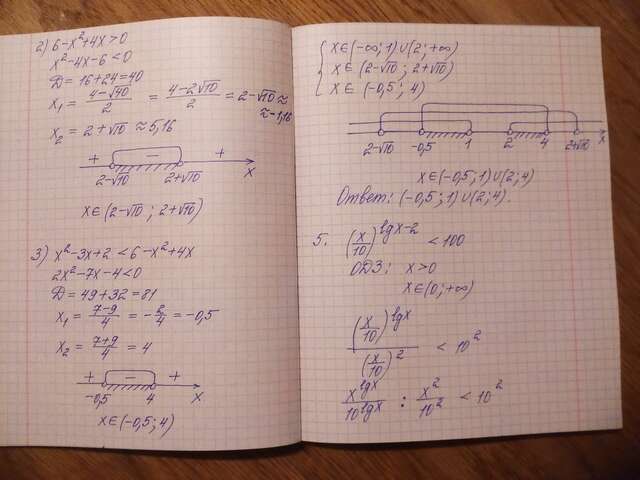 2) 6-x²+4x>0
x²-4x-6<0
D=16+24=40
x₁ = (4-√40)/2 = (4-2√10)/2 = 2-√10 ≈
≈-1,16
x₂ = 2+√10 ≈ 5,16
+ - +
2-√10 2+√10 x
x∈(2-√10; 2+√10)
3) x²-3x+2 < 6-x²+4x
2x²-7x-4<0
D=49+32=81
x₁ = (7-9)/4 = -2/4 = -0,5
x₂ = (7+9)/4 = 4
+ - +
-0,5 4 x
x∈(-0,5;4)
{ x∈(-∞;1)∪(2;+∞)
x∈(2-√10; 2+√10)
x∈(-0,5; 4)
2-√10 -0,5 1 2 4 2+√10 x
x∈(-0,5;1)∪(2;4)
Ответ: (-0,5;1)∪(2;4).
5. (x/10)^(lgx-2) < 100
ОДЗ: x>0
x∈(0;+∞)
(x/10)^(lgx) / (x/10)² < 10²
x^(lgx)/10^(lgx) : x²/10² < 10²